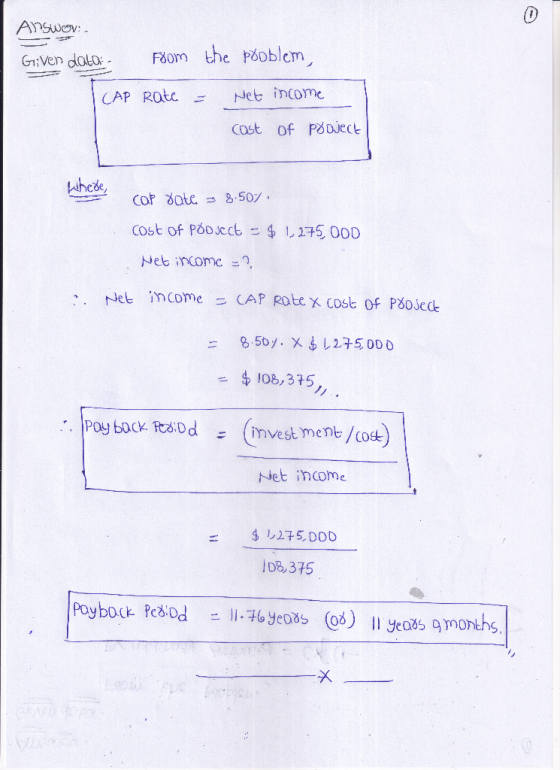 1
Answer:.
Given data:- From the problem,
CAP Rate = Net income
Cost of project
Where,
Cap rate = 8.50%.
Cost of Project = $ 1,275,000
Net income = ?
∴ Net income = CAP Rate x Cost of Project
= 8.50%. X $ 1,275,000
= $ 108,375,,.
∴ Payback Period = (investment/cost)
Net income
= $ 1,275,000
108,375
Payback Period = 11.76 years (or) 11 years 9 months.,,
x